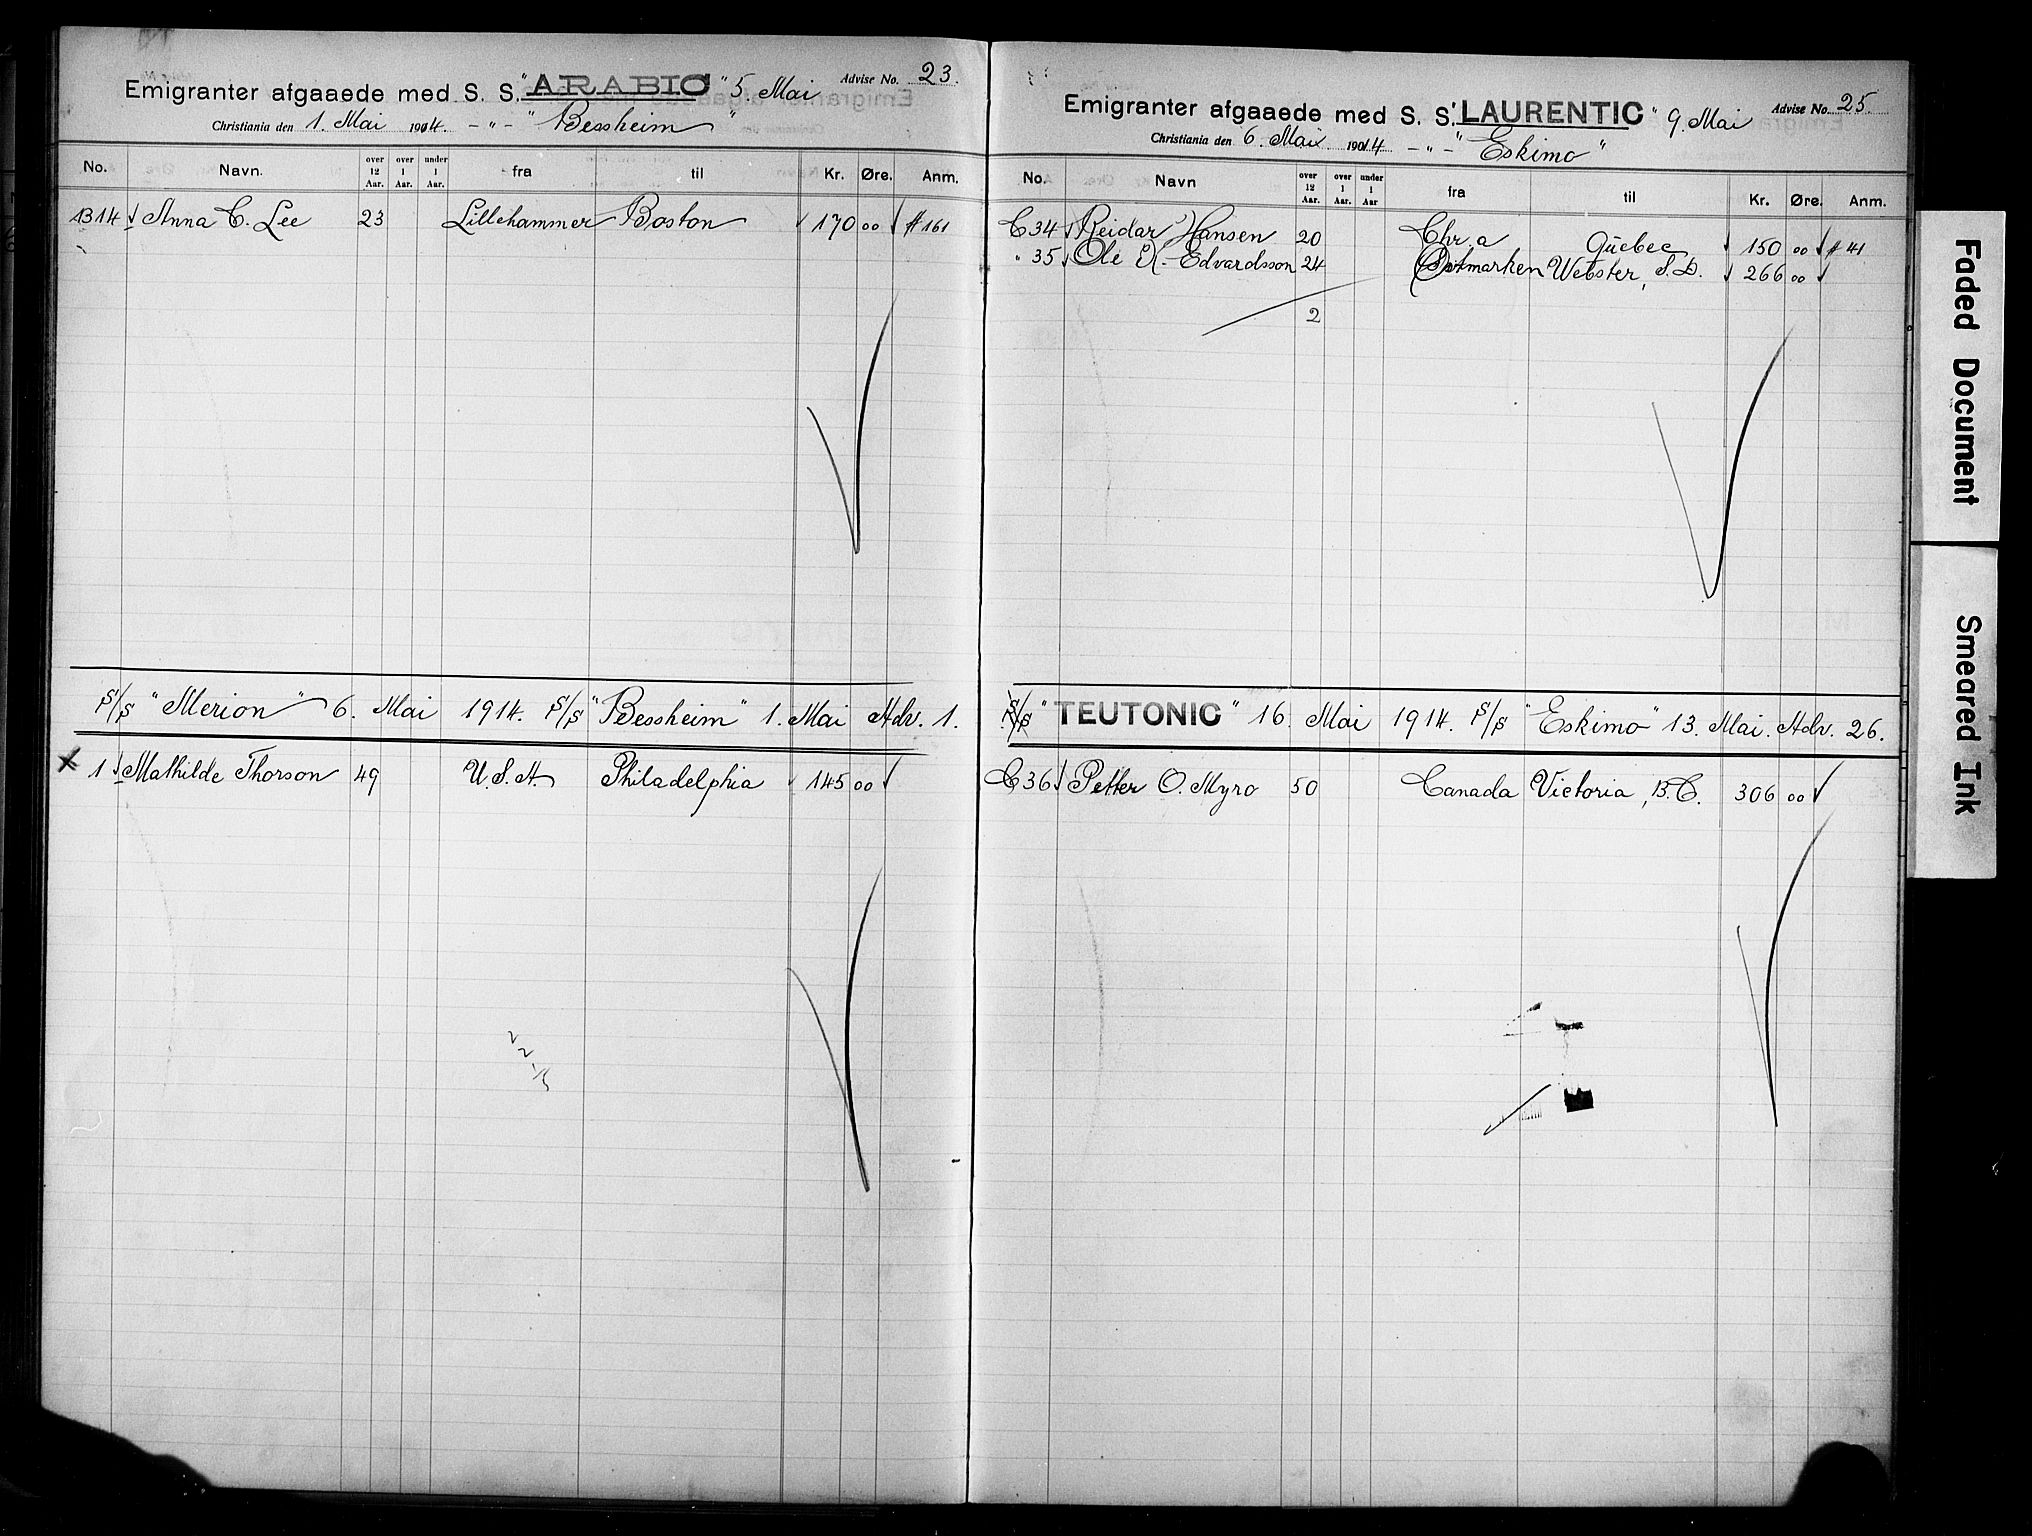 Emigranter afgaaede med S. S. "ARABIC" 5 Mai Advise No. 23.
Christiania den 1. Mai 1914. - " - "Bessheim"
No. Navn. over 12 Aar. over 1 Aar. under 1 Aar. fra til Kr. Øre. Anm.
1314 Anna C. Lee 23 Lillehammer Boston 170 00 # 161
S/S "Merion" 6. Mai 1914. S/S "Bessheim" 1. Mai Adv. 1.
x 1 Mathilde Thorson 49 U.S.A. Philadelphia 145 00
Emigranter afgaaede med S. S. "LAURENTIC" 9. Mai Advise No. 25.
Christiania den 6. Mai 1914 - " - "Eskimo"
No. Navn over 12 Aar. over 1 Aar. under 1 Aar fra til Kr. Øre. Anm.
C34 Reidar Hansen 20 Chr.a Quebec 150 00 # 41
" 35 Ole Edvardsson 24 Webster, S.D. 266 00
2
S/S "TEUTONIC" 16. Mai 1914. S/S "Eskimo" 13. Mai. Adv. 26.
C36 Petter O. Myro 50 Canada Victoria, B.C. 306 00
Faded Document
Smeared Ink